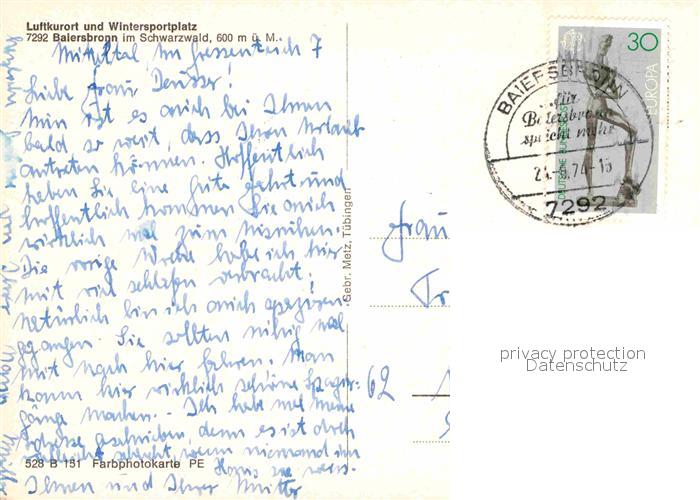 Luftkurort und Wintersportplatz
7292 Baiersbronn im Schwarzwald, 600 m ü. M.
Mitteltal, Im 7
Liebe Frau Deusser!
Nun ist es auch bei Ihnen
bald so weit, dass Ihren Urlaub
antreten können. Hoffentlich
haben Sie eine gute Fahrt und
hoffentlich kommen Sie auch
wirklich mal zum Ausruhen.
Die vorige Woche habe ich hier
mit viel schlafen verbracht!
Natürlich bin ich auch spazieren
gegangen. Sie sollten ruhig mal
mit nach hier fahren. Man
kann hier wirklich schöne Spazier-
gänge machen. - Ich habe mal meine
Adresse geschrieben, denn es ist doch
vielleicht schlecht, wenn niemand im
Haus sie weis.
Ihnen und Ihrer Mutter
528 B 151 Farbphotokarte PE
Gebr. Metz, Tübingen
30
EUROPA
DEUTSCHE BUNDESPOST
BAIERSBRONN
...für
Baiersbronn
spricht mehr
74-15
7292
Frau
62
privacy protection
Datenschutz